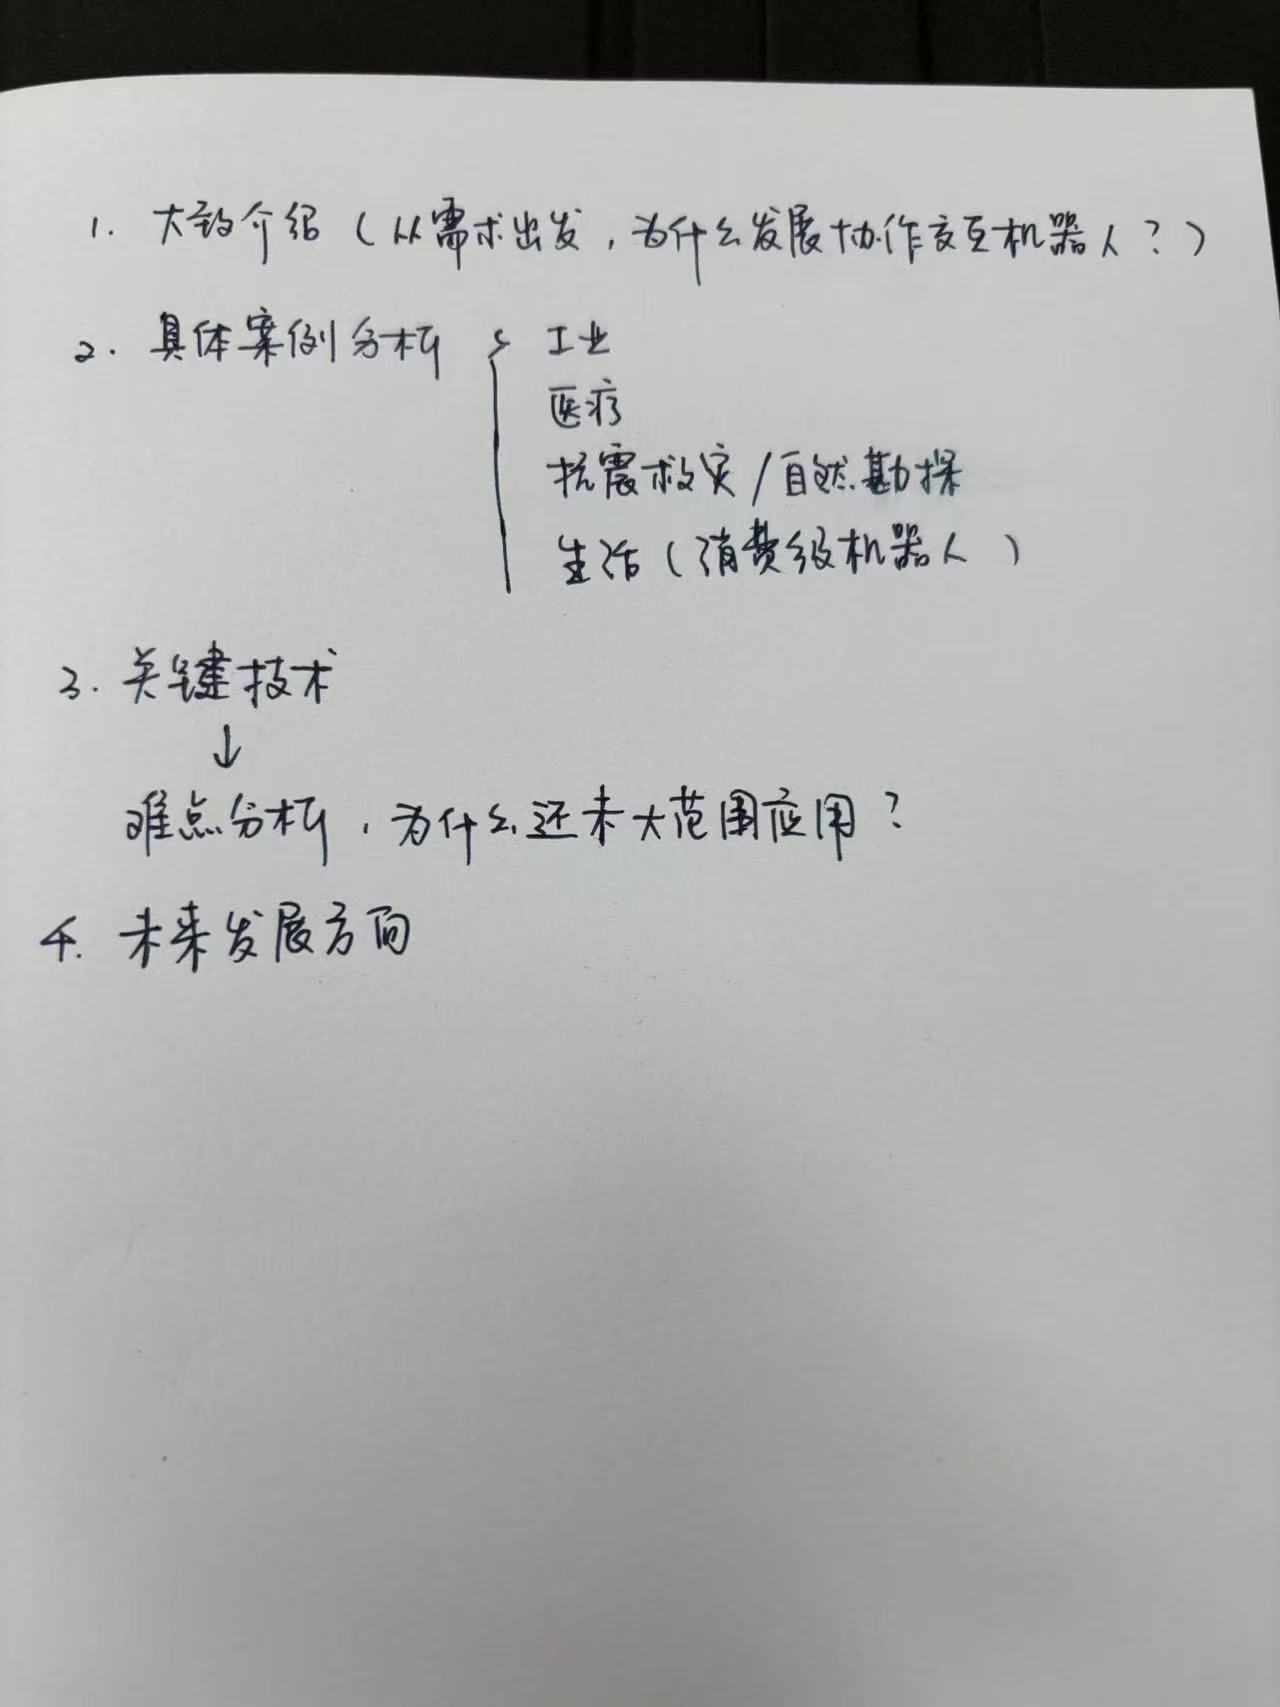 1. 大致介绍（从需求出发，为什么发展协作交互机器人？）
2. 具体案例分析 { 工业
医疗
抗震救灾/自然勘探
生活（消费级机器人）
3. 关键技术
↓
难点分析，为什么还未大范围应用？
4. 未来发展方向